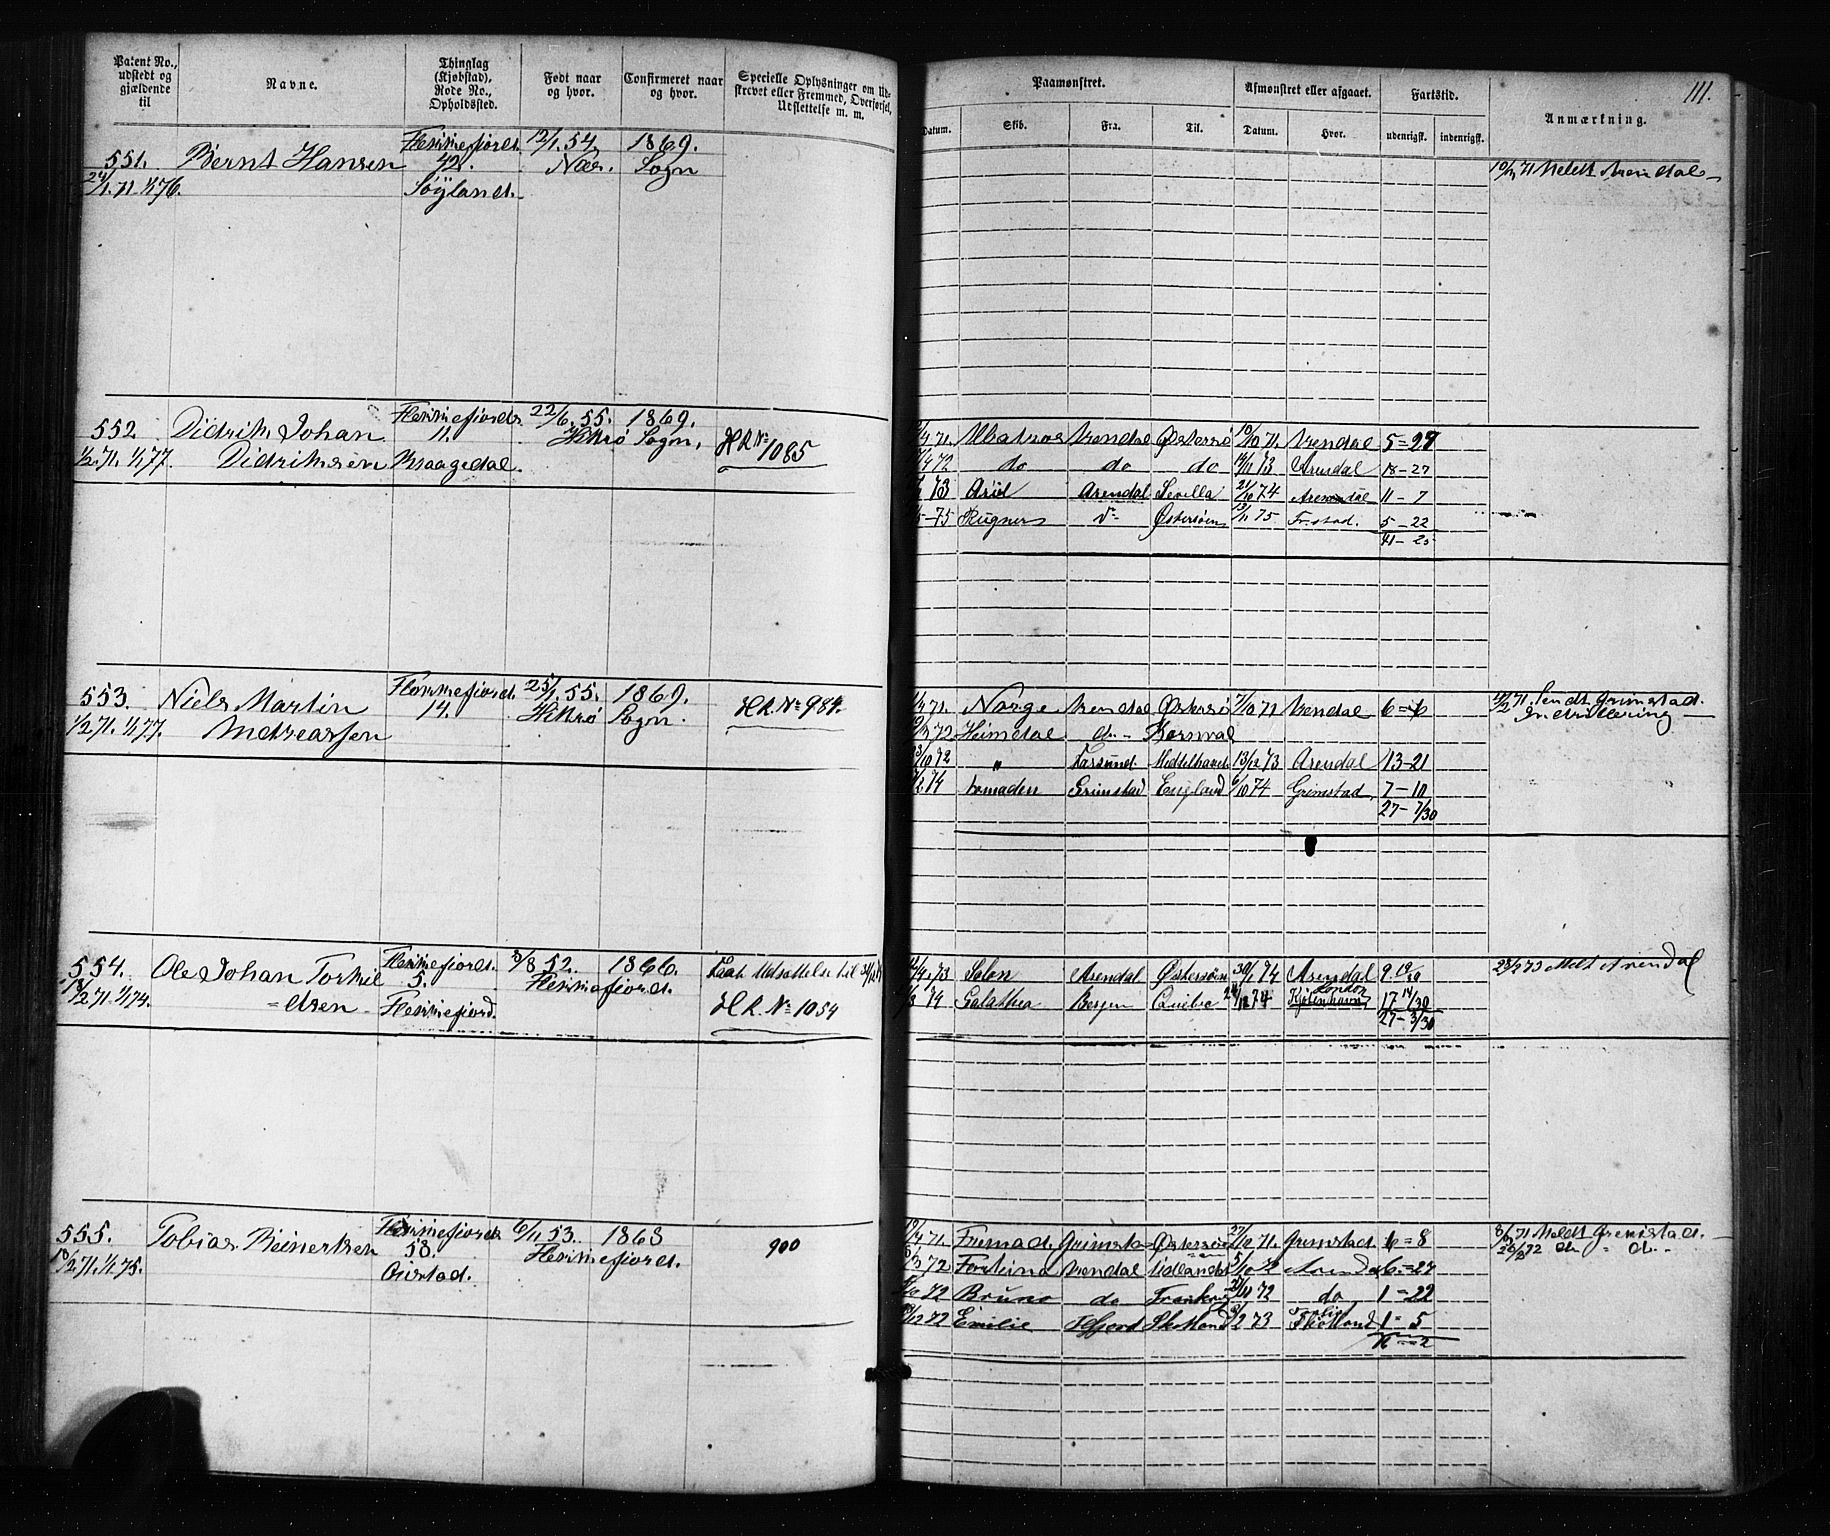 111.
Patent No., udstedt og gjældende til
Navne.
Thinglag (Kjøbstad), Rode No., Opholdssted.
Født naar og hvor.
Confirmeret naar og hvor.
Specielle Oplysninger om Udskrevet eller Fremmed, Overførsel, Udslettelse m. m.
Paamønstret.
Afmønstret eller afgaaet.
Fartstid.
Anmærkning.
Datum. Skib. Fra. Til. Datum. Hvor. udenrigsk. indenrigsk.
551. Bernt Hansen Flekkefjords 12/1 54. 1869.
42. Næs. Sogn
24/1 71 1/1 76. Söyland.
10/2 71 Meldt Arendal
552 Didrik Johan Flekkefjords 22/6 55. 1869.
11. Hitterø Sogn. HR No 1085
1/2 71. 1/1 77. Didriksen Kraagedal.
71. Albatros Arendal Østersø 10/10 71. Arendal 5=27
4 72 do do do 73 Arendal 18-27
73 Ariel Arendal Sevilla 21/10 74 Arendal 11-7
75 Rugner do Østersøen 13/11 75 Fr.stad. 5-22
41-25
553. Niels Martin Flekkefjords 25/1 55. 1869. HR. No 984.
14. Hitterø Sogn.
1/2 71. 1/1 77. Andreassen
71. Norge Arendal Østersø 7/10 71 Arendal 6=6
72 Heimdal do Kornval
10 72 " Farsund Middelhavet 13/12 73 Arendal 13-21
2 74 Nomaden Grimstad England 6/10 74 Grimstad 7-10
27-7/30
2 71. Sendt Grimstad
Indrullering
554. Ole Johan Torkil Flekkefjords 3/8 52. 1866.
5. Flekkefjord.
2 71. 1/1 74. =dsen Flekkefjord. HR. No 1054
4 73 Solon Arendal Østersøen 30/1 74 Arendal 9
London
74 Galathea Bergen 74 Kjøbenhavn 17 14/30
27-3/30
2 73 Meldt Arendal
555. Tobias Reinertsen Flekkefjords 6/11 53. 1868 900
58. Flekkefjord.
2 71. 1/1 75. Oierstad.
4 71. Fremad Grimstad Østersøen 27/10 71. Grimstad 6=8
3 72 Fortuna Arendal 5/10 72 Arendal 6=27
10 72 Bruno do Frankrig 11 72 do 1=22
12 72 Emilie Flfjord Skotland 2 73 Skotland 1=5
8/2 71 Meldt Grimstad.
72 do " do